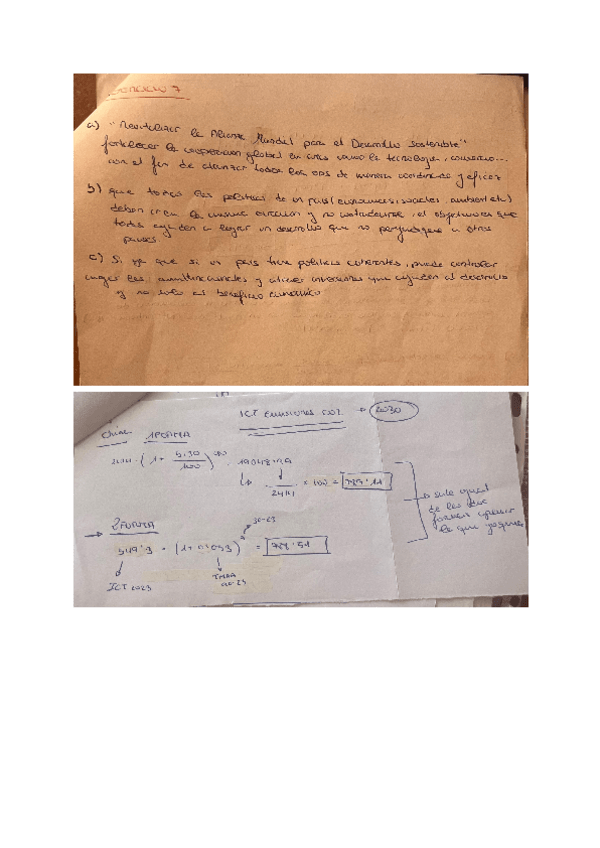 EJERCICIO 7
a) "Revitalizar la Alianza Mundial para el Desarrollo Sostenible"
fortalecer la cooperación global en áreas como la tecnología, comercio...
con el fin de alcanzar todos los ODS de manera coordinada y eficaz
b) que todas las políticas de un país (económicas, sociales, ambient. etc)
deben ir en la misma dirección y no contradecirse, el objetivo es que
todas ayuden a lograr un desarrollo que no perjudique a otros
países.
c) Si, ya que si un país tiene políticas coherentes, puede controlar
mejor las multinacionales y atraer inversiones que ayuden al desarrollo
y no solo al beneficio económico
ICT EMISIONES CO2 → 2030
China 1 FORMA
· (1+ 5.30/100)
/2411 × 100 = 789'11
→ sale igual
de las dos
formas
lo que
→ 2 FORMA
30-23
549'3 · (1+0'053) = 788'51
ICT 2023
TMAA